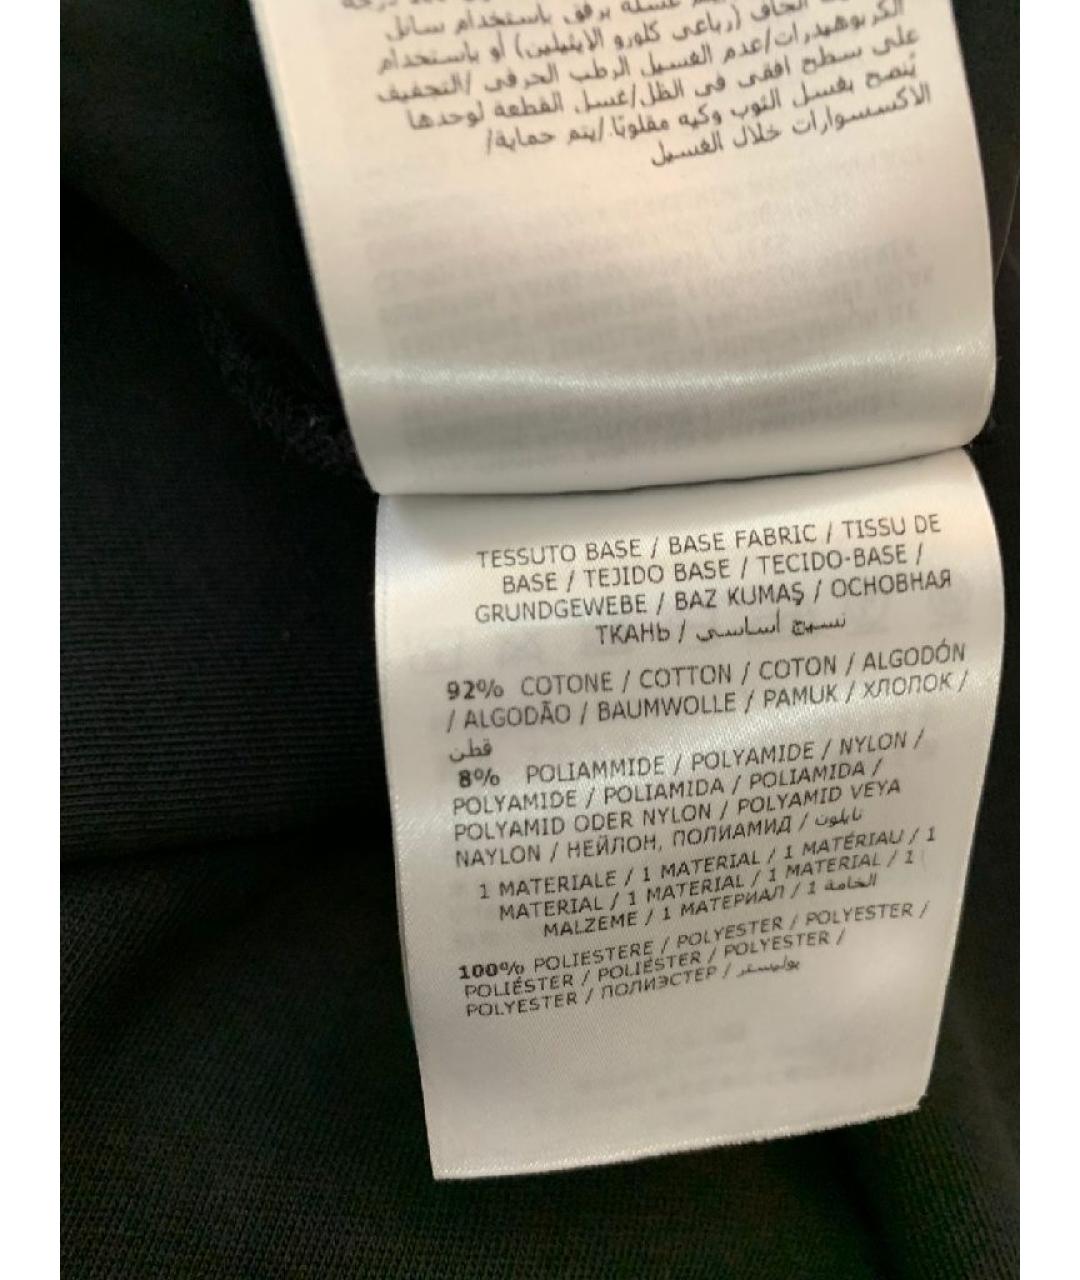 غسله برفق باستخدام سائل
الجاف (رباعي كلورو الايثيلين) أو باستخدام
الكربوهيدرات/عدم الغسيل الرطب الحرفي /التجفيف
على سطح افقى فى الظل/غسل القطعة لوحدها
يُنصح بغسل الثوب وكيه مقلوبًا./يتم حماية/
الاكسسوارات خلال الغسيل
TESSUTO BASE / BASE FABRIC / TISSU DE
BASE / TEJIDO BASE / TECIDO-BASE /
GRUNDGEWEBE / BAZ KUMAŞ / ОСНОВНАЯ
ТКАНЬ / نسيج أساسي
92% COTONE / COTTON / COTON / ALGODÓN
/ ALGODÃO / BAUMWOLLE / PAMUK / ХЛОПОК /
قطن
8% POLIAMMIDE / POLYAMIDE / NYLON /
POLYAMIDE / POLIAMIDA / POLIAMIDA /
POLYAMID ODER NYLON / POLYAMID VEYA
NAYLON / НЕЙЛОН, ПОЛИАМИД / نايلون
1 MATERIALE / 1 MATERIAL / 1 MATÉRIAU / 1
MATERIAL / 1 MATERIAL / 1 MATERIAL / 1
MALZEME / 1 МАТЕРИАЛ / 1 الخامة
100% POLIESTERE / POLYESTER / POLYESTER /
POLIÉSTER / POLIÉSTER / POLYESTER /
POLYESTER / ПОЛИЭСТЕР / بوليستر